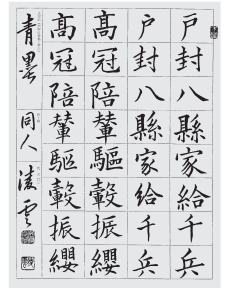 戶封八縣家給千兵
戶封八縣家給千兵
高冠陪輦驅轂振纓
高冠陪輦驅轂振纓
青墨同人凌雲